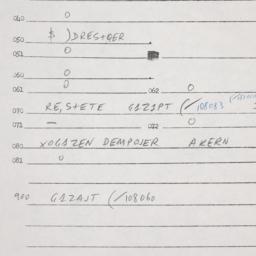 040 0
050 $ )DRES+QER
051 0
060 0
061 0 062 0
070 RE,S+ETE GAZAPT (/108083
071 — 072 0
080 XOGAZEN DEMPOJER AKERN
081 0
900 GAZAJT (/108060